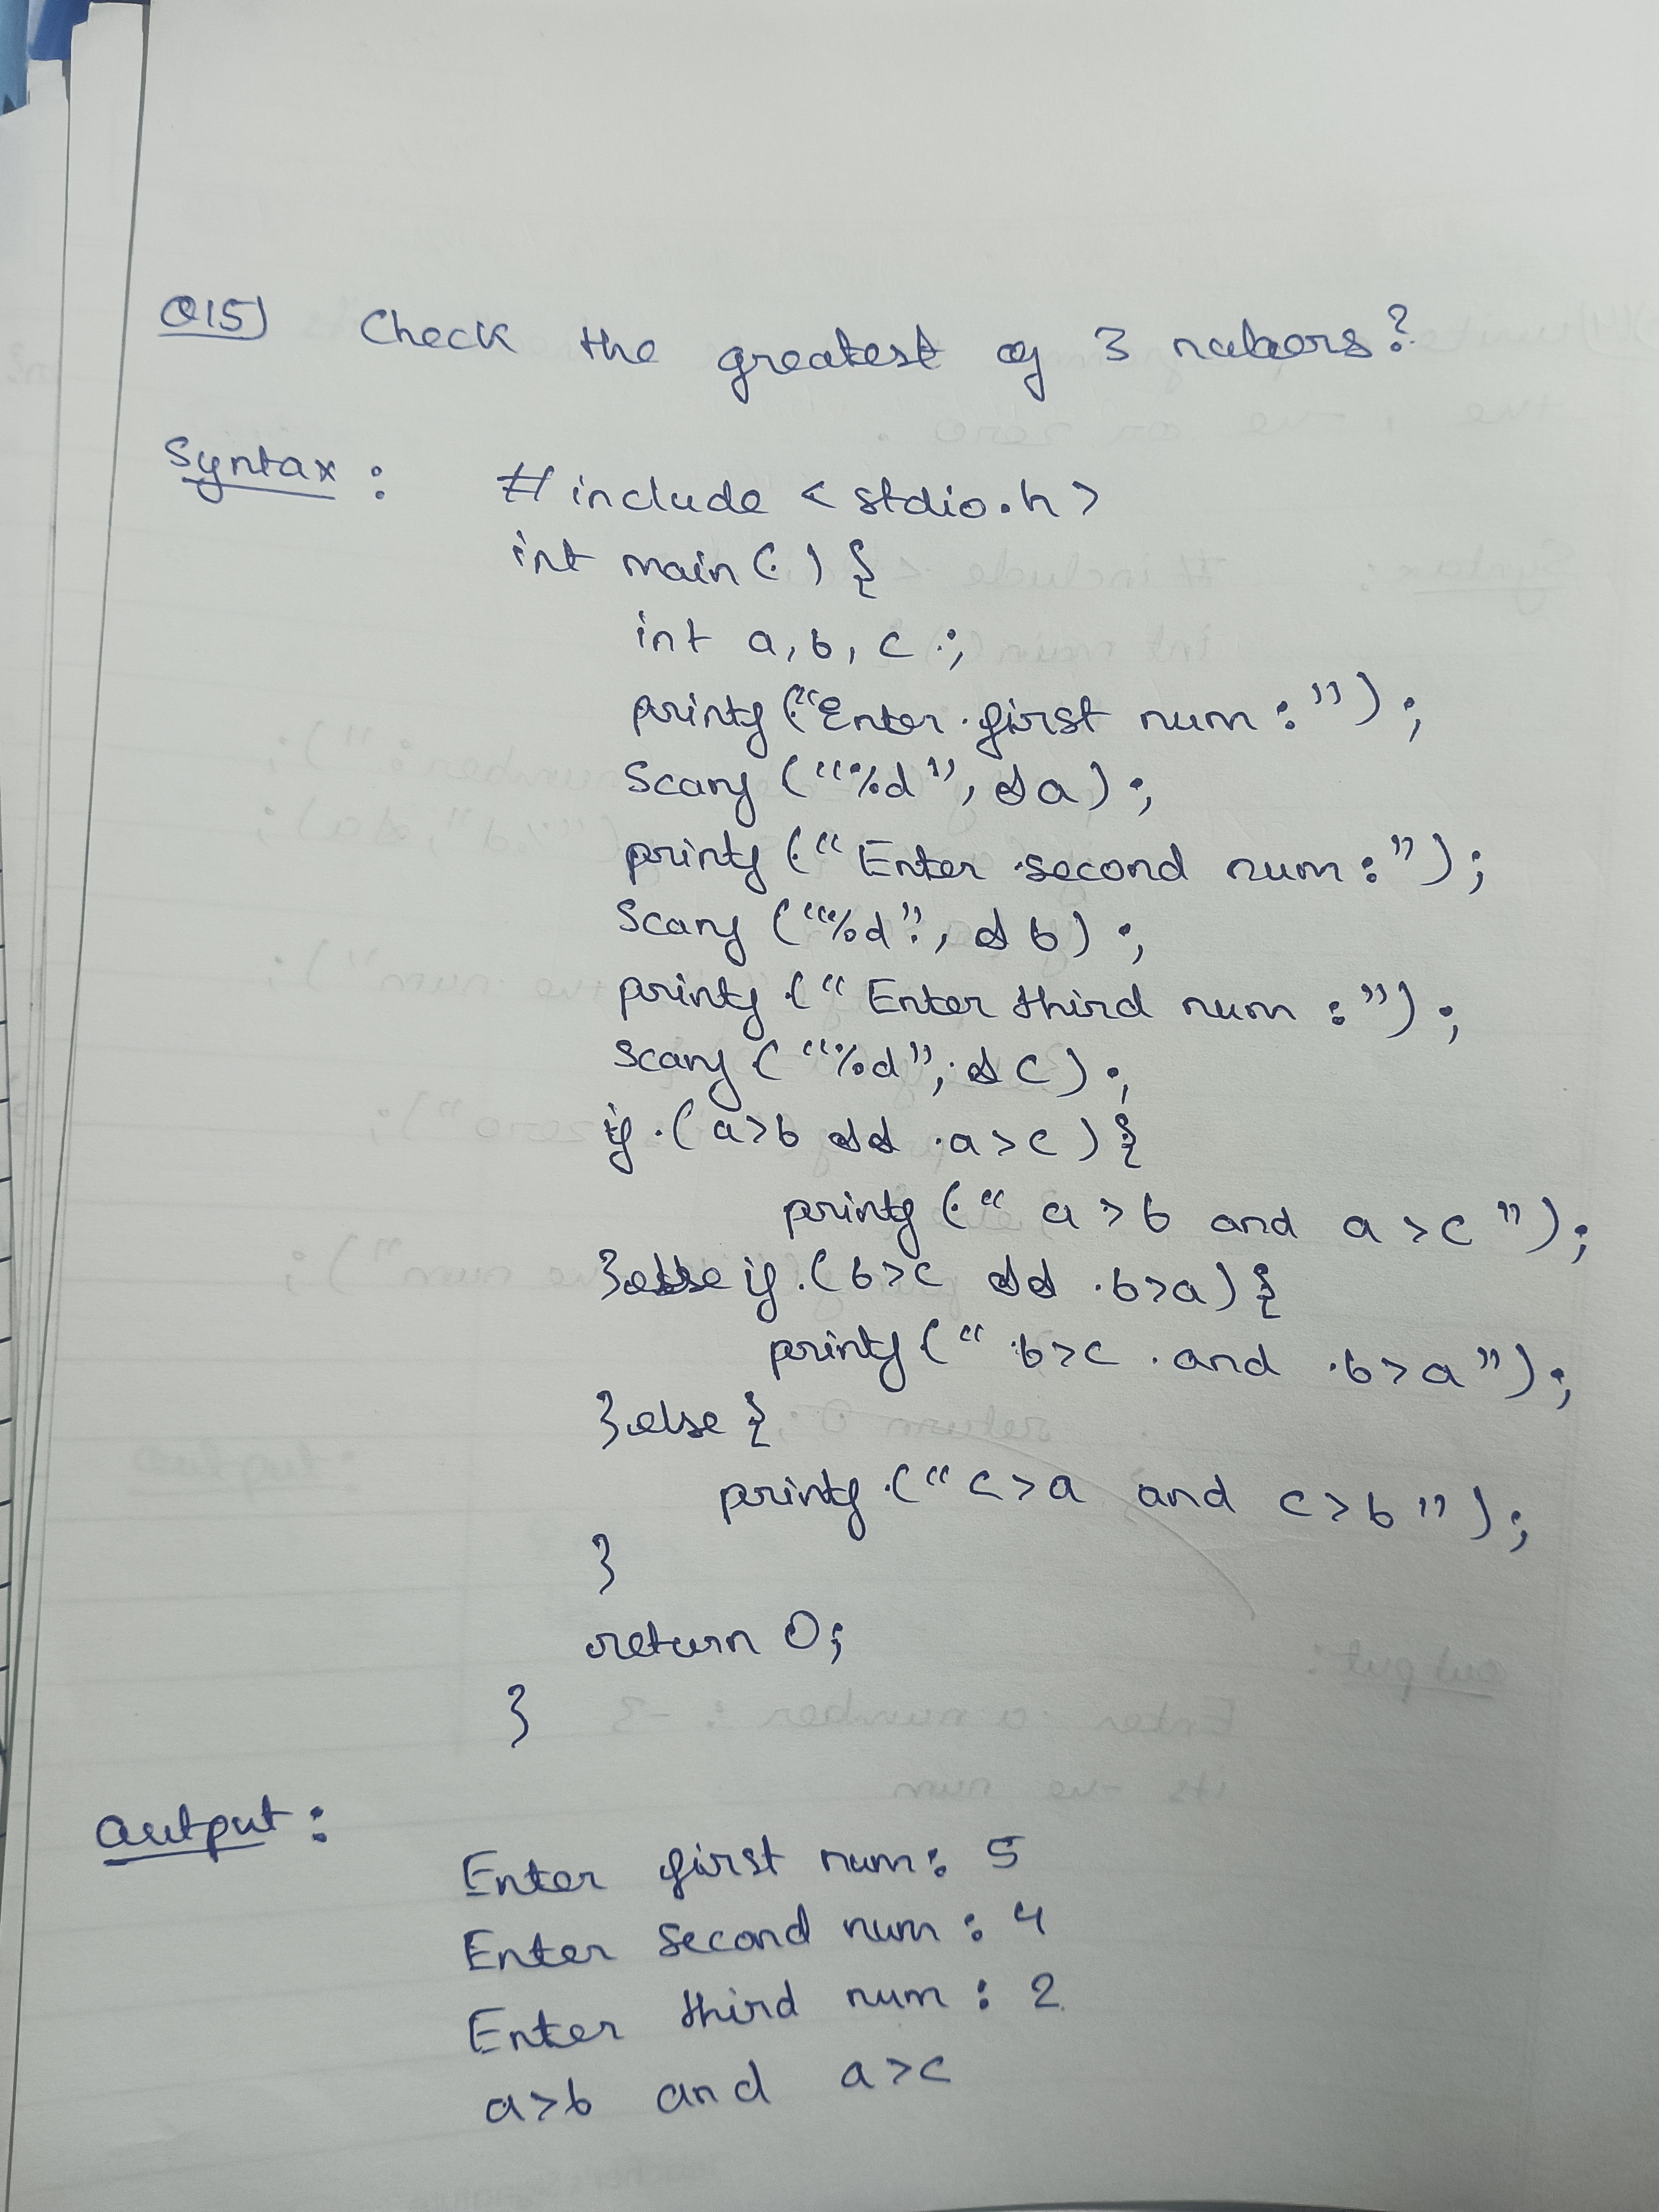 Q15) Check the greatest of 3 nubers?
Syntax : #include <stdio.h>
int main() {
int a, b, c ;
printf("Enter first num : ");
Scanf ("%d", &a) ;
printf ("Enter second num : ");
Scanf ("%d", &b) ;
printf (" Enter third num : ") ;
Scanf ("%d", &c) ;
if (a>b && a>c) {
printf (" a>b and a>c ");
}else if (b>c && b>a) {
printf (" b>c and b>a ") ;
}else {
printf ("c>a and c>b ") ;
}
return 0;
}
Output :
Enter first num : 5
Enter second num : 4
Enter third num : 2
a>b and a>c